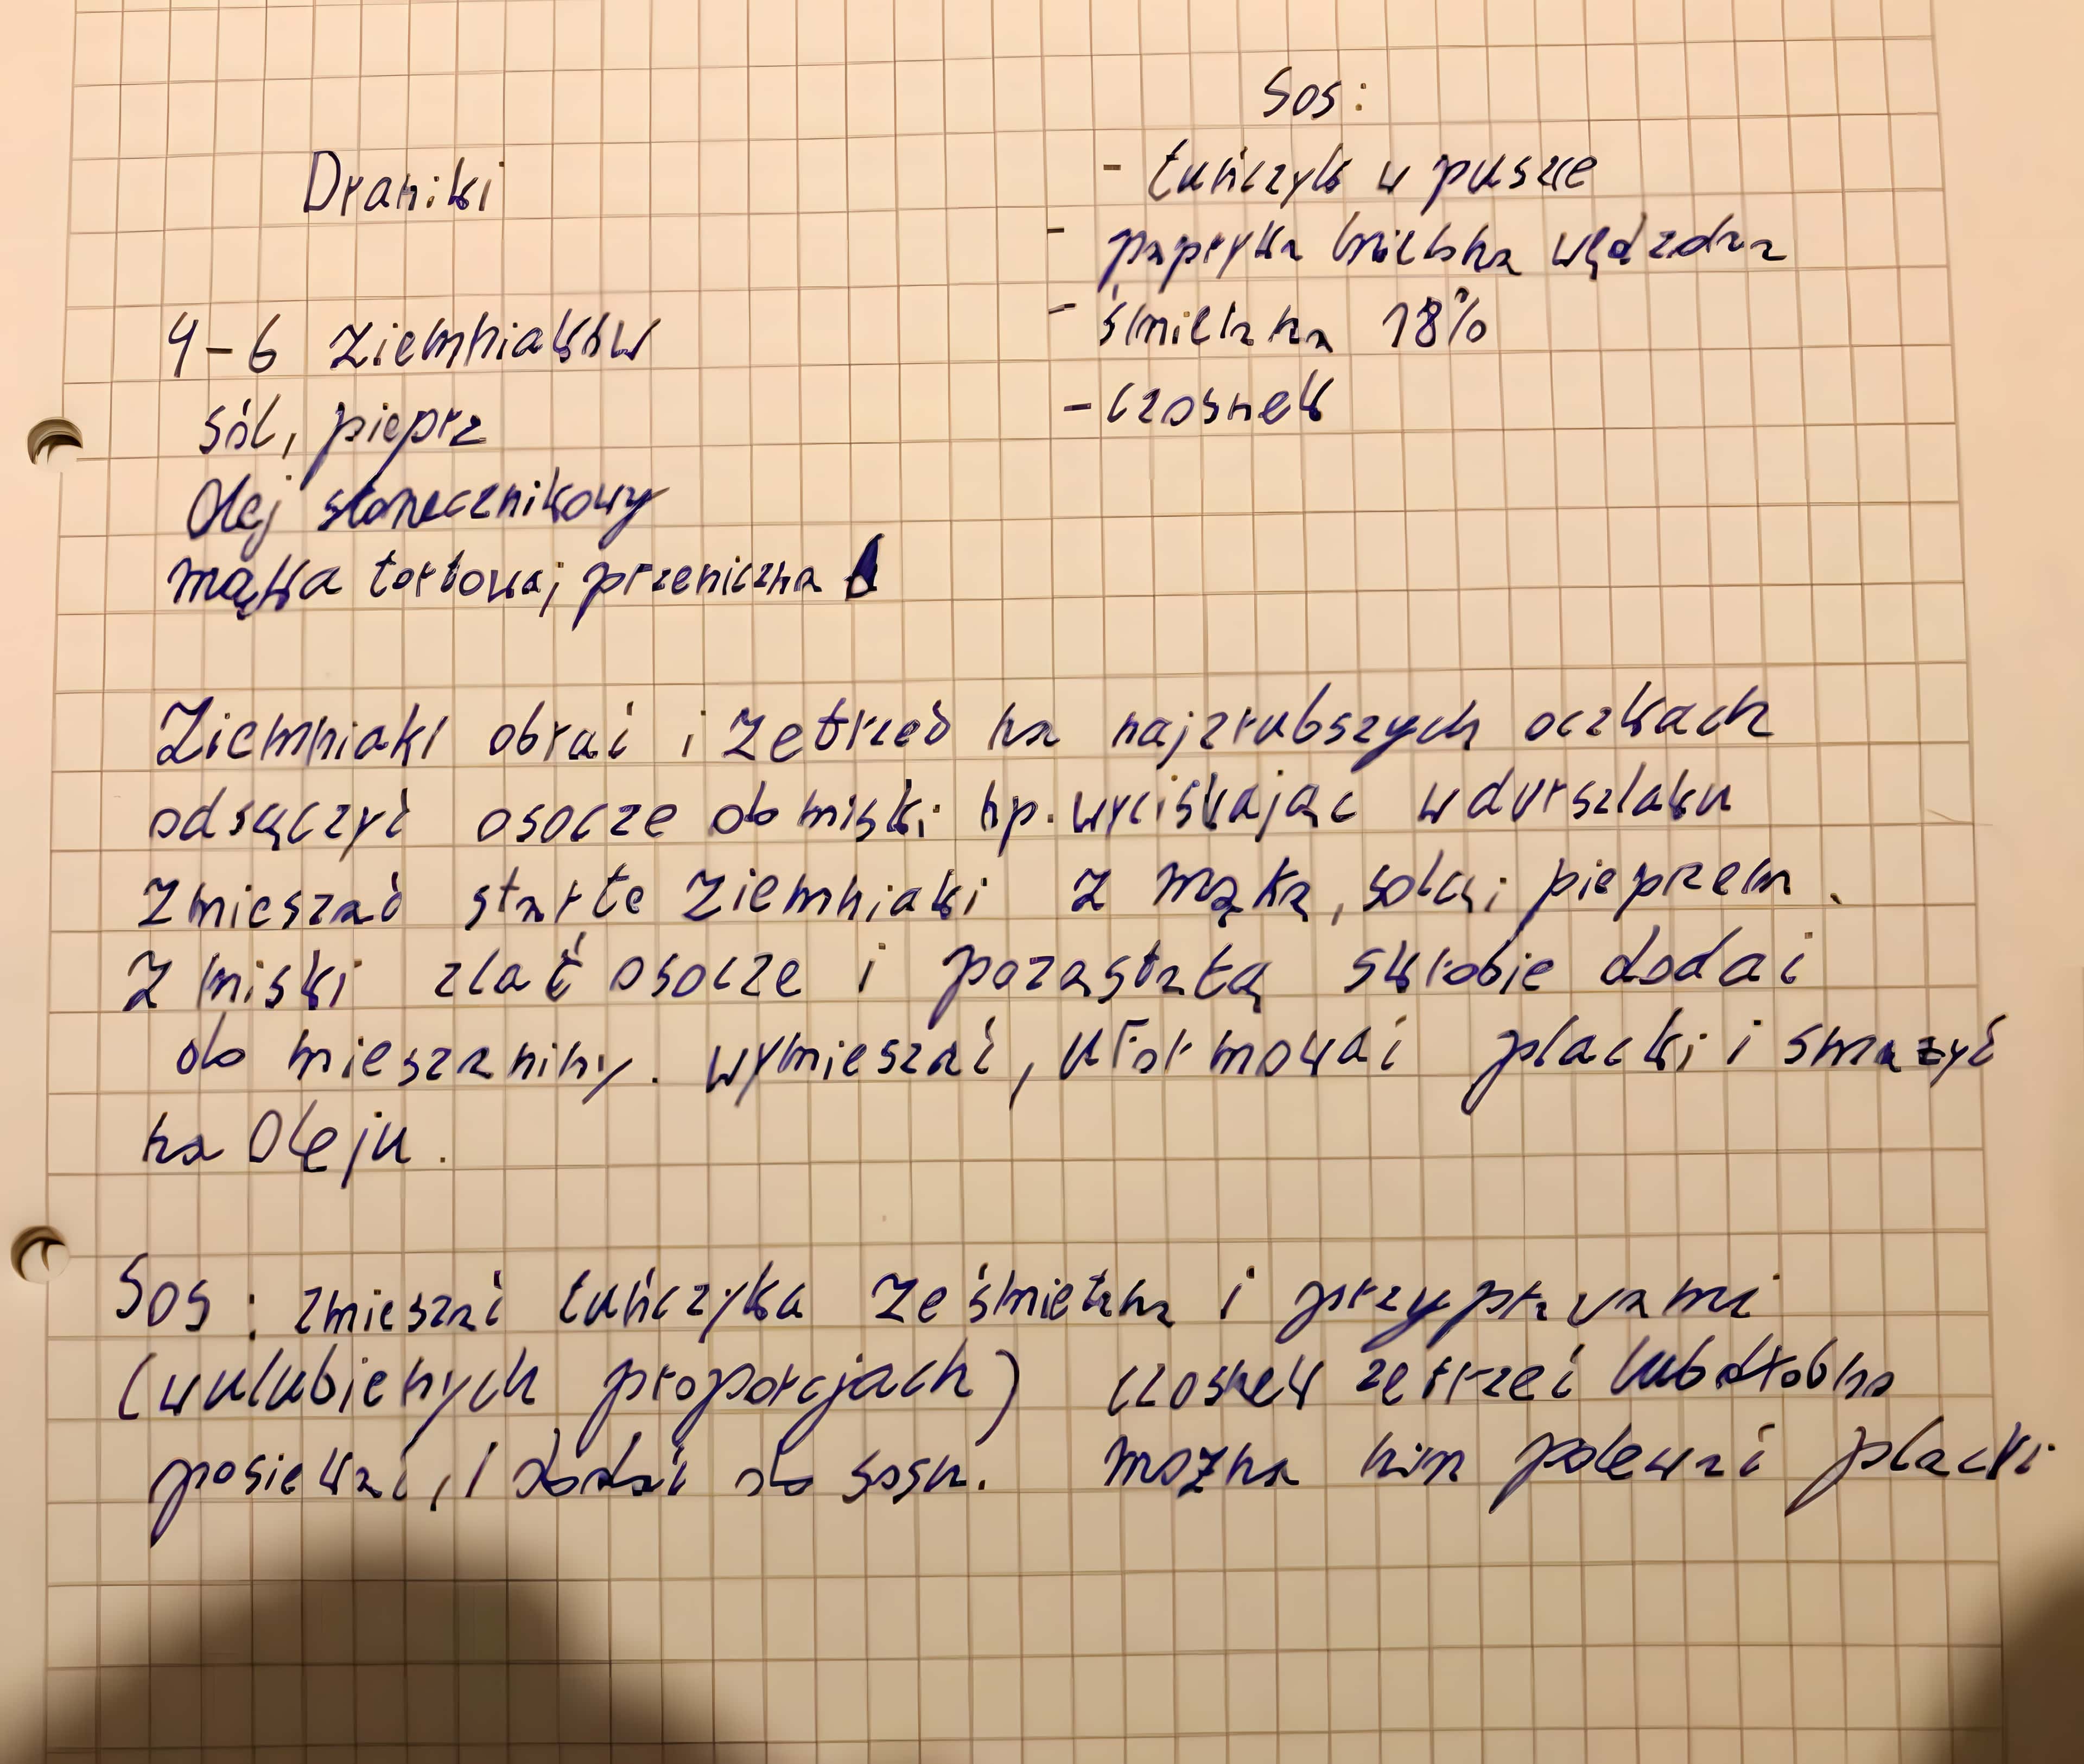 Draniki
4-6 ziemniaków
sól, pieprz
Olej słonecznikowy
mąka tortowa, przeniczna
Sos:
- tuńczyk w puszce
- papryka mielona wędzona
- śmietana 18%
- czosnek
Ziemniaki obrać i zetrzeć na najgrubszych oczkach
odsączyć osocze do miski np. wyciskając w durszlaku
Zmieszać starte ziemniaki z mąką, solą i pieprzem.
Z miski zlać osocze i pozastałą skrobie dodać
do mieszaniny. wymieszać, uformować placki i smażyć
na Oleju.
Sos: zmieszać tuńczyka ze śmietaną i przyprawami
(w ulubienych proporcjach) czosnek zetrzeć lub drobno
posiekać, i dodać do sosu. można nim polewać placki